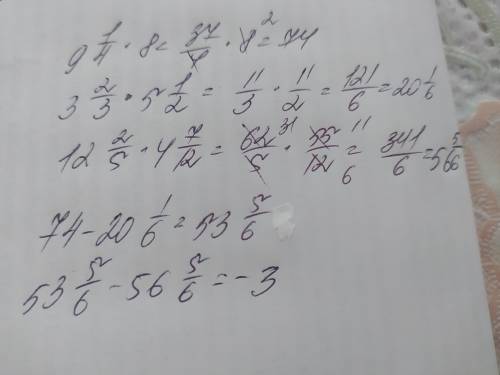 9 1/4 · 8 = 37/4 · 8 2 = 74
3 2/3 · 5 1/2 = 11/3 · 11/2 = 121/6 = 20 1/6
12 2/5 · 4 7/12 = 62 31/5 · 55 11/12 6 = 341/6 = 56 5/6
74 - 20 1/6 = 53 5/6
53 5/6 - 56 5/6 = - 3